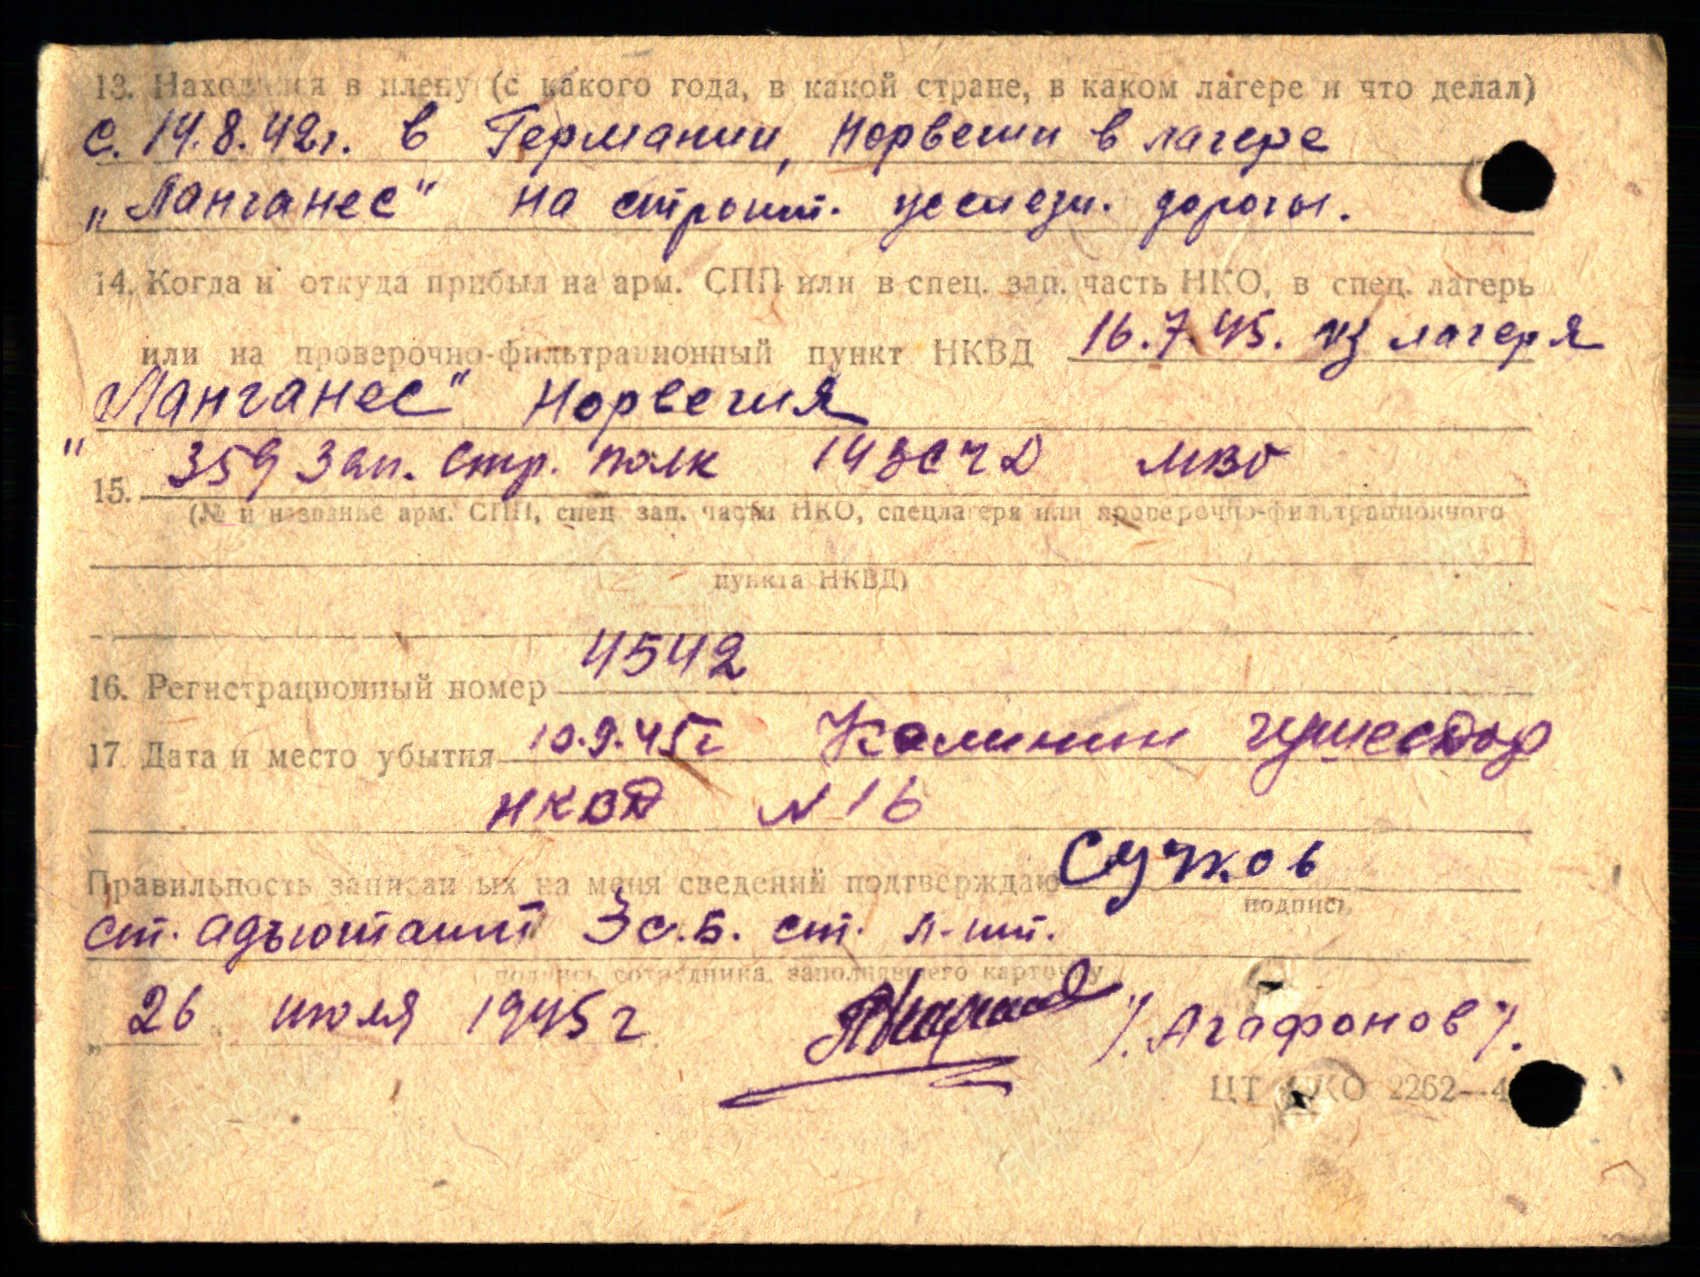 13. Находился в плену (с какого года, в какой стране, в каком лагере и что делал)
с. 14.8.42г. в Германии, Норвегии в лагере
„Ланганес" на строит. железн. дороги.
14. Когда и откуда прибыл на арм. СПП или в спец. зап. часть НКО, в спец. лагерь
или на проверочно-фильтрационный пункт НКВД 16.7.45. из лагеря
„Ланганес" Норвегия
15. 359 Зап. стр. полк 14 ЗСЧД МВО
(№ и название арм. СПП, спец. зап. части НКО, спецлагеря или проверочно-фильтрационного
пункта НКВД)
16. Регистрационный номер 4542
17. Дата и место убытия 10.9.45г Калинин гушосдор
НКВД № 16
Правильность записан ых на меня сведений подтверждаю Сучков
подпись
ст. адъютант 3 с.б. ст. л-нт.
(подпись сотрудника, заполнявшего карточку)
„26 июля 1945 г /. Агафонов /.
ЦТ НКО 2262—4